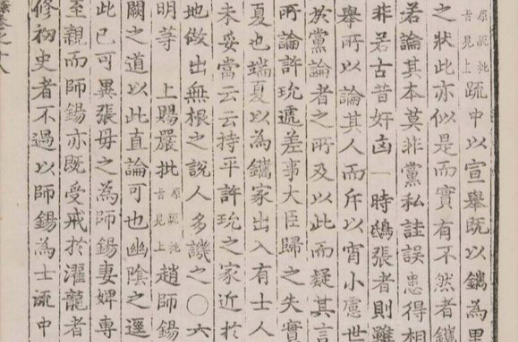 原疏批旨見上䟽中以宣舉旣以鑴為里
之狀此亦似是而實有不然者鑴
若論其本莫非黨私詿誤患得相
非若古昔奸凶一時鴟張者則雖
舉所以論其人而斥以宵小慮世
於黨論者之所及以此而疑其言
所論許玧遞差事大臣歸之失實
夏也端夏以為鑴家出入有士人
未妥當云云持平許玧之家近於
地做出無根之說人多譏之〇六
明等 上賜嚴批原疏批旨見上趙師錫
闕之道以此直論可也幽陰之逕
此已可異張母之為師錫妻婢專
至親而師錫亦旣受戒於濯龍者
修初史者不過以師錫為士流中